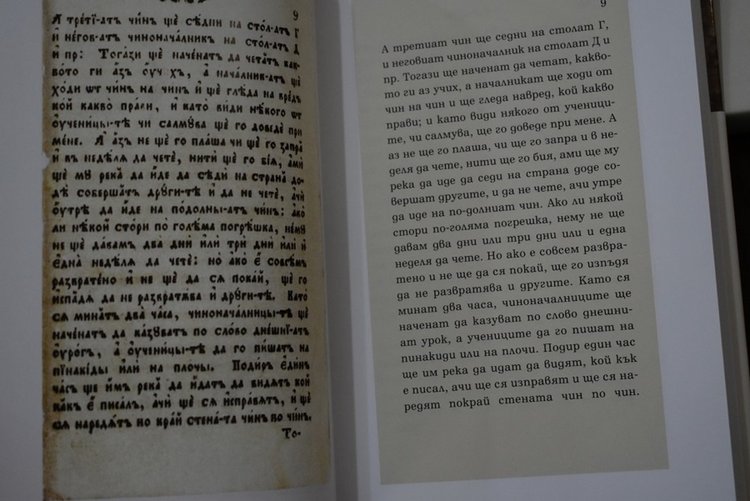 9
А третїй-атъ чинъ щѐ сѣдни на столъ-атъ Г
и негов-атъ чиноначалникъ на столъ-атъ Д
и пр: Тогази щѐ наченатъ да четатъ как-
вото ги азъ оучихъ, а началник-атъ щѐ
ходи ѿ чинъ на чинъ и щѐ глѣда на врѣдъ
кой какво прави, и като види нѣкого ѿ
оученицы-тѣ чи салмува щѐ го доведе при
мене. Я азъ не щѐ го плаша чи щѐ го запра
и въ недѣля да чете, нити щѐ го бїя, ами
щѐ мꙋ река да иде да сѣди на страна до-
дѣ совершатъ други-тѣ и да не чете, ачи
оутрѣ да иде на подолны-атъ чинъ: ако
ли нѣкой стори по голѣма погрѣшка, немꙋ
не щѐ давамъ два дни или три дни или и
една недѣля да чете: но ако є совсѣмъ
развратено и не щѐ да ся покай, щѐ го
испѫдя да не развратява и други-тѣ. Като
ся минатъ два часа, чиноначалницы-тѣ щѐ
наченатъ да казуватъ по слово днешнї-атъ
оурокъ, а оученицы-тѣ да го пишатъ на
пїнакїды или на плочы. Подиръ єдинъ
часъ щѐ имъ река да идатъ да видятъ кой
какъ є писалъ, ачи щѐ ся исправятъ, и щѐ
ся наредятъ по край стена-та чинъ по чинъ.
То-
9
А третиат чин ще седни на столат Г,
и неговиат чиноначалник на столат Д и
пр. Тогази ще наченат да четат, какво-
то ги аз учих, а началникат ще ходи от
чин на чин и ще гледа навред, кой какво
прави; и като види някого от ученици-
те, чи салмува, ще го доведе при мене. А
аз не ще го плаша, чи ще го запра и в не-
деля да чете, нити ще го бия, ами ще му
река да иде да седи на страна доде со-
вершат другите, и да не чете, ачи утре
да иде на по-долният чин. Ако ли някой
стори по-голяма погрешка, нему не ще
давам два дни или три дни или и една
неделя да чете. Но ако е совсем развра-
тено и не ще да ся покай, ще го изпъдя
да не развратява и другите. Като ся
минат два часа, чиноначалниците ще
наченат да казуват по слово днешни-
ат урок, а учениците да го пишат на
пинакиди или на плочи. Подир един час
ще им река да идат да видят, кой кък
е писал, ачи ще ся изправят и ще ся на-
редят покрай стената чин по чин.